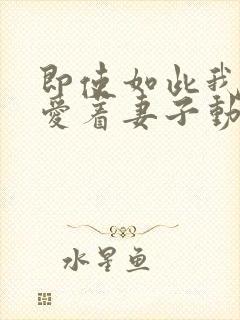 即使如此我
愛着妻子動
水星鱼